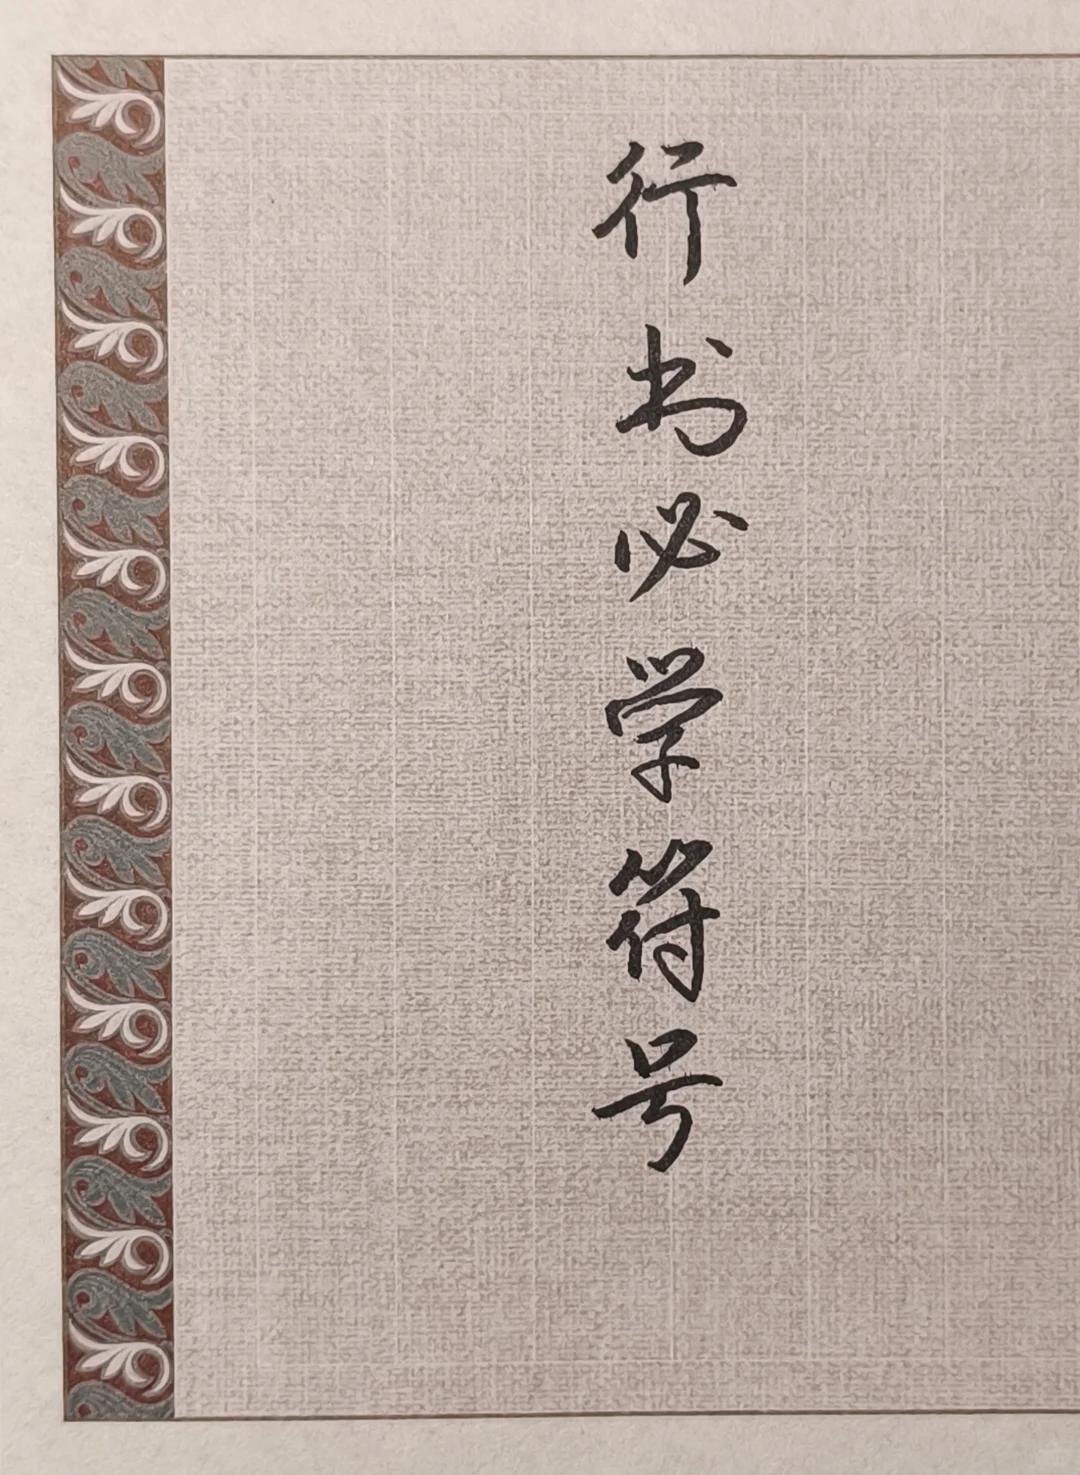 行书必学符号